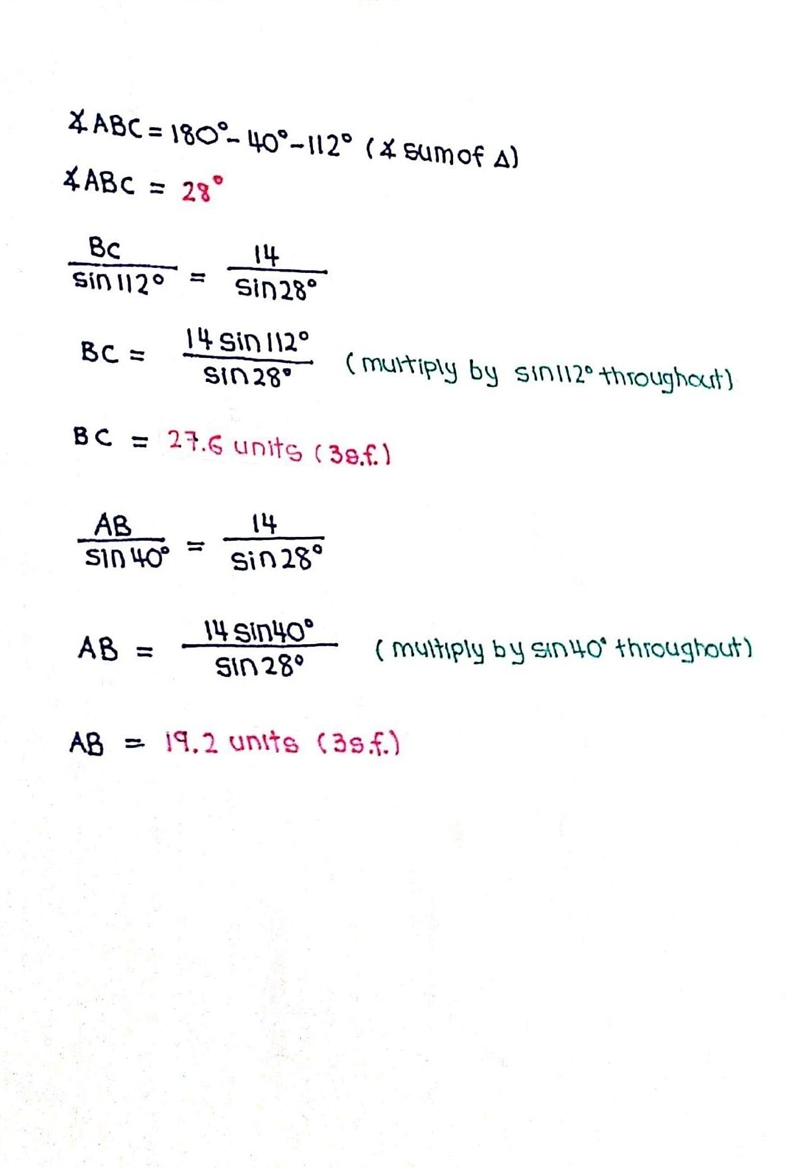 ∡ABC = 180° - 40° - 112° (∡ sum of Δ)
∡ABC = 28°
BC / sin 112° = 14 / sin 28°
BC = 14 sin 112° / sin 28° (multiply by sin 112° throughout)
BC = 27.6 units (3s.f.)
AB / sin 40° = 14 / sin 28°
AB = 14 sin 40° / sin 28° (multiply by sin 40° throughout)
AB = 19.2 units (3s.f.)